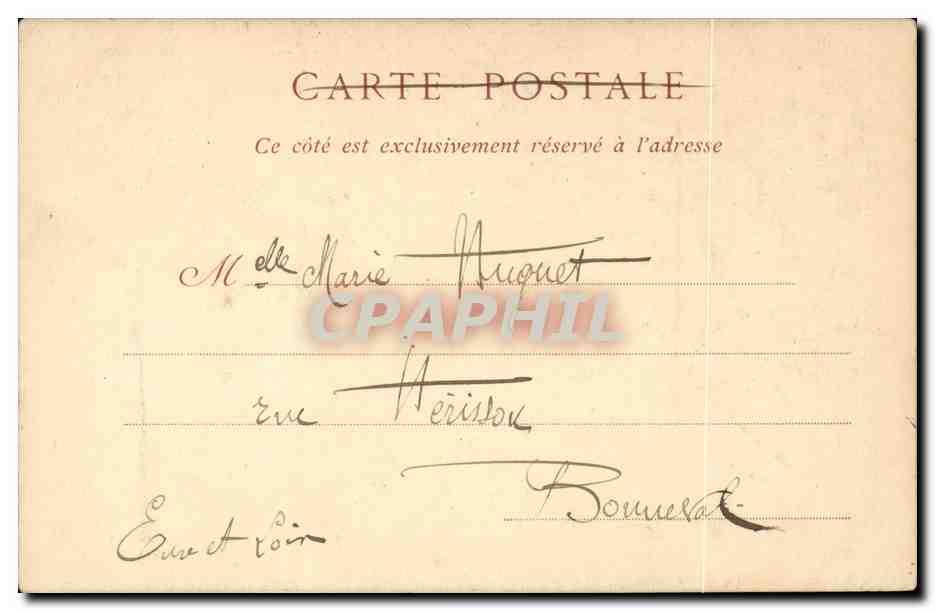 CARTE POSTALE
Ce côté est exclusivement réservé à l'adresse
Melle Marie Huguet
CPAPHIL
rue Hérisson
Bonneval
Eure et Loir